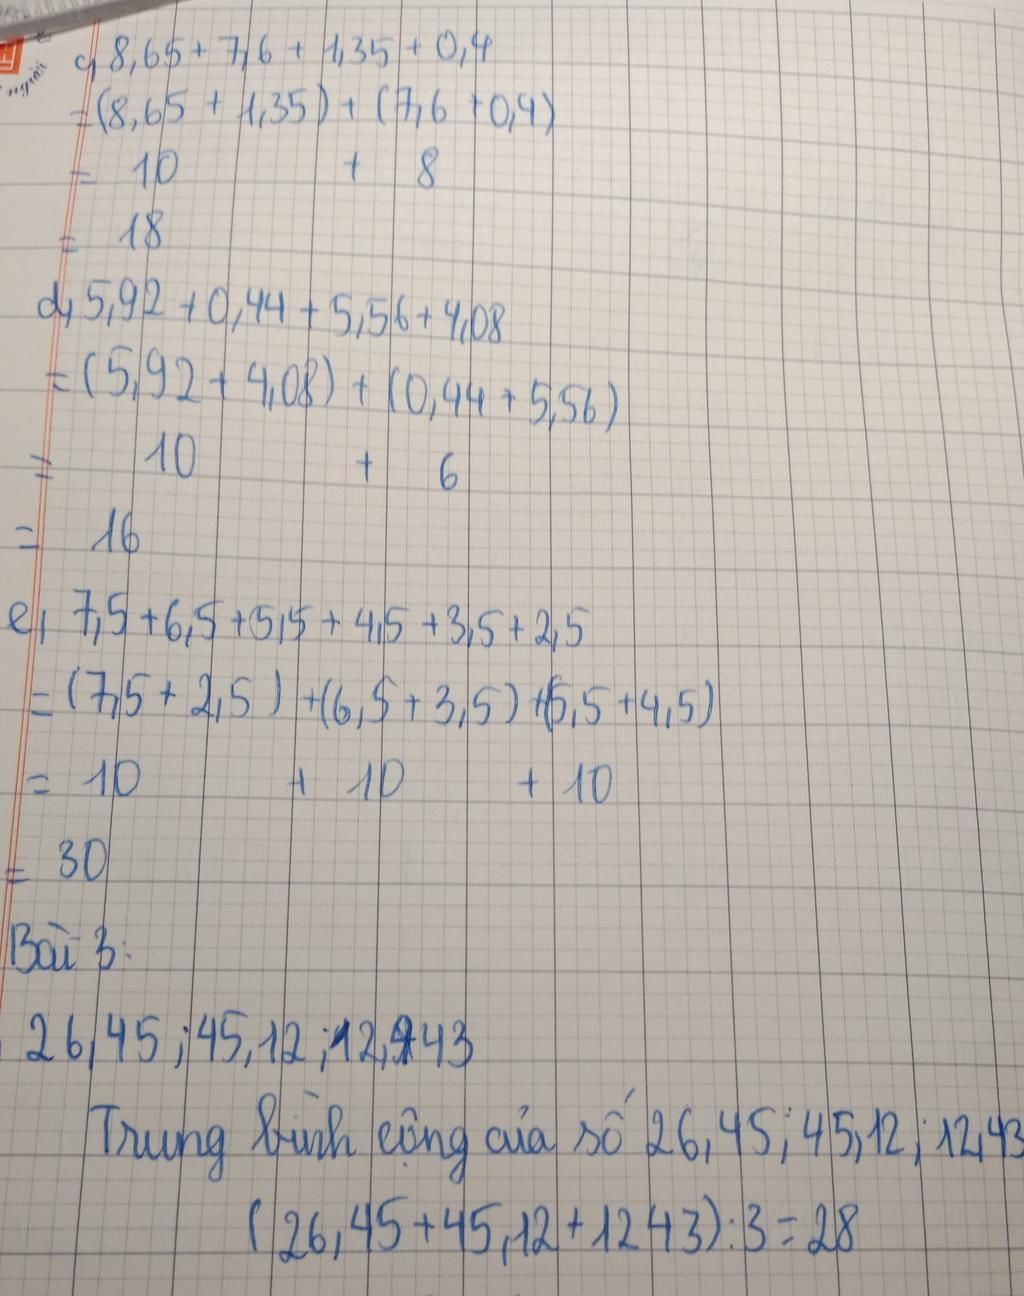 người
c, 8,65 + 7,6 + 1,35 + 0,4
= (8,65 + 1,35) + (7,6 + 0,4)
= 10 + 8
= 18
d, 5,92 + 0,44 + 5,56 + 4,08
= (5,92 + 4,08) + (0,44 + 5,56)
= 10 + 6
= 16
e, 7,5 + 6,5 + 5,5 + 4,5 + 3,5 + 2,5
= (7,5 + 2,5) + (6,5 + 3,5) + (5,5 + 4,5)
= 10 + 10 + 10
= 30
Bài 3:
26,45 ; 45,12 ; 12,43
Trung bình cộng của số 26,45 ; 45,12 ; 12,43
(26,45 + 45,12 + 12 43) : 3 = 28